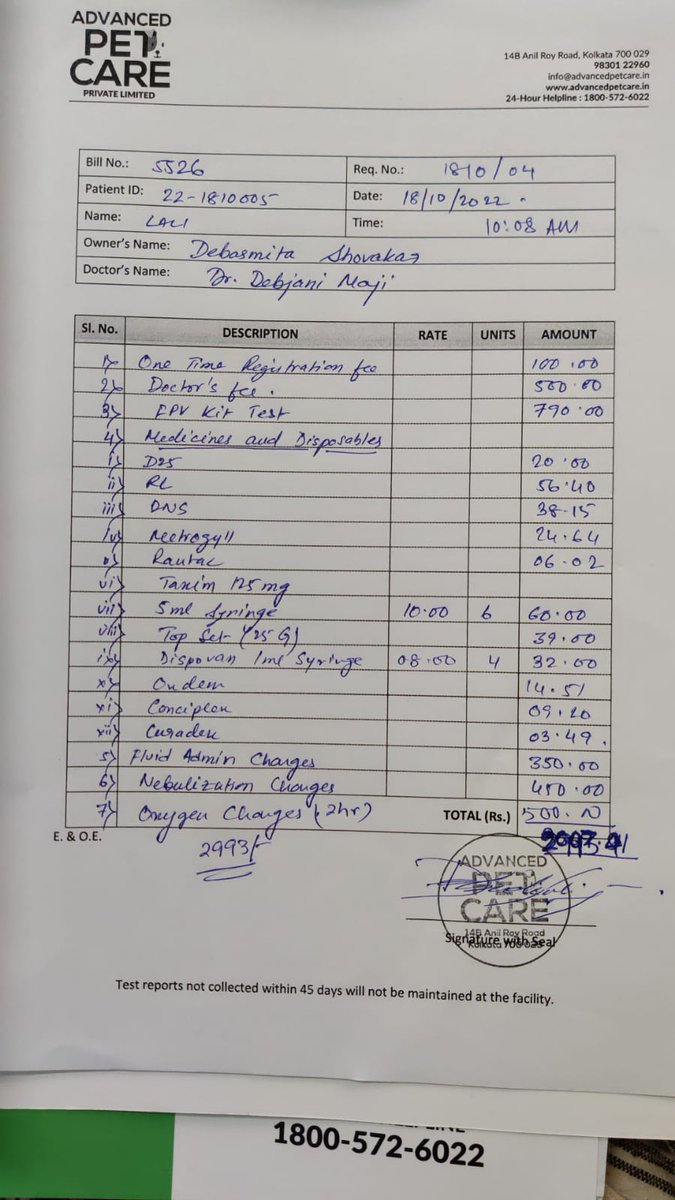 ADVANCED
PET
CARE
PRIVATE LIMITED
14B Anil Roy Road, Kolkata 700 029
98301 22960
info@advancedpetcare.in
www.advancedpetcare.in
24-Hour Helpline : 1800-572-6022
Bill No.: 5526 Req. No.: 1810/04
Patient ID: 22-1810005 Date: 18/10/2022.
Name: LALI Time: 10:08 AM
Owner's Name: Debasmita Shovakar
Doctor's Name: Dr. Debjani Maji
Sl. No. DESCRIPTION RATE UNITS AMOUNT
1> One Time Registration fee 100.00
2> Doctor's fee. 500.00
3> FPV Kit Test 790.00
4> Medicines and Disposables
i> D25 20.00
ii> RL 56.40
iii> DNS 38.15
iv> Metrogyl 24.64
v> Rantac 06.02
vi> Taxim 125mg
vii> 5ml Syringe 10:00 6 60.00
viii> Top Set (25 G) 39.00
ix> Dispovan 1ml Syringe 08:00 4 32.00
x> Ondem 14.51
xi> Conciplex 09.20
xii> 03.49.
5> Fluid Admin Charges 350.00
6> Nebulization Charges 450.00
7> Oxygen Charges (2hr) TOTAL (Rs.) 500.00
E. & O.E.
2993/-
ADVANCED
PET
CARE
14B Anil Roy Road
Kolkata 700 029
Signature with Seal
Test reports not collected within 45 days will not be maintained at the facility.
1800-572-6022